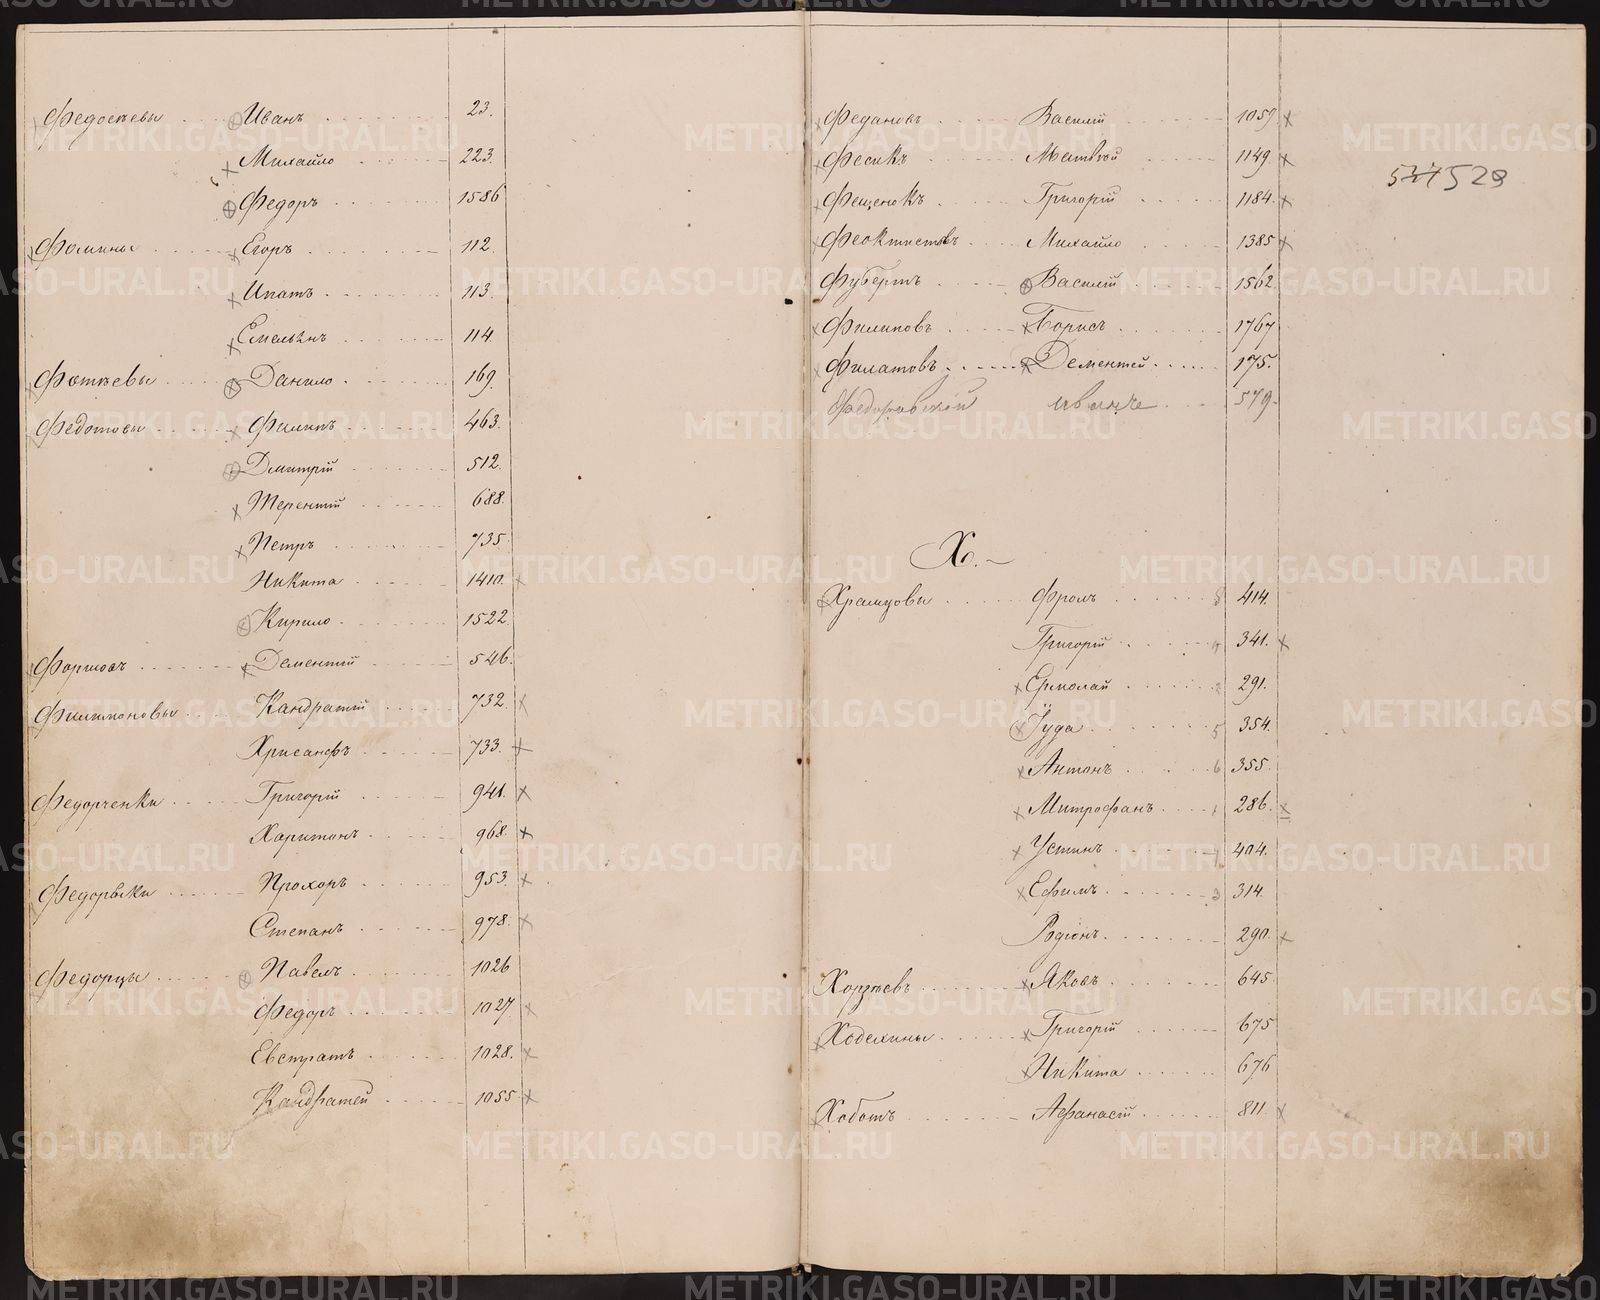 Федосѣевы Иванъ 23.
Михайло 223.
Федоръ 1586
Фомины Егоръ 112.
Ипатъ 113.
Емельянъ 114.
Фотѣевы Данило 169.
Федотовы Филипъ 463.
Дмитрій 512.
Терентій 688.
Петръ 735.
Никита 1410.
Кирило 1522.
Дементій 546.
Филимоновы Кандратій 732.
Хрисанфъ 733.
Федорченки Григорій 941.
Харитонъ 968.
Прохоръ 953.
Степанъ 978.
Федорцы Павелъ 1026
Федоръ 1027
Евстратъ 1028.
Кандратей 1055
Федановъ Василій 1059
Фесикъ Матвѣй 1149
Фещенокъ Григорій 1184.
Феоктистовъ Михайло 1385
Фубертъ Василій 1562
Филиповъ Борисъ 1767
Филатовъ Дементей 175.
Федоровской иванъ 579
528
Х.
Храмцовы Фролъ 8 414.
Григорій 4 341.
Ермолай 2 291.
Іуда 5 354.
Антонъ 6 355.
Митрофанъ 1 286.
Устинъ 7 404.
Ефимъ 3 314.
Родіонъ 290.
Яковъ 645
Григорій 675
Никита 676
Хоботъ Афанасій 811.